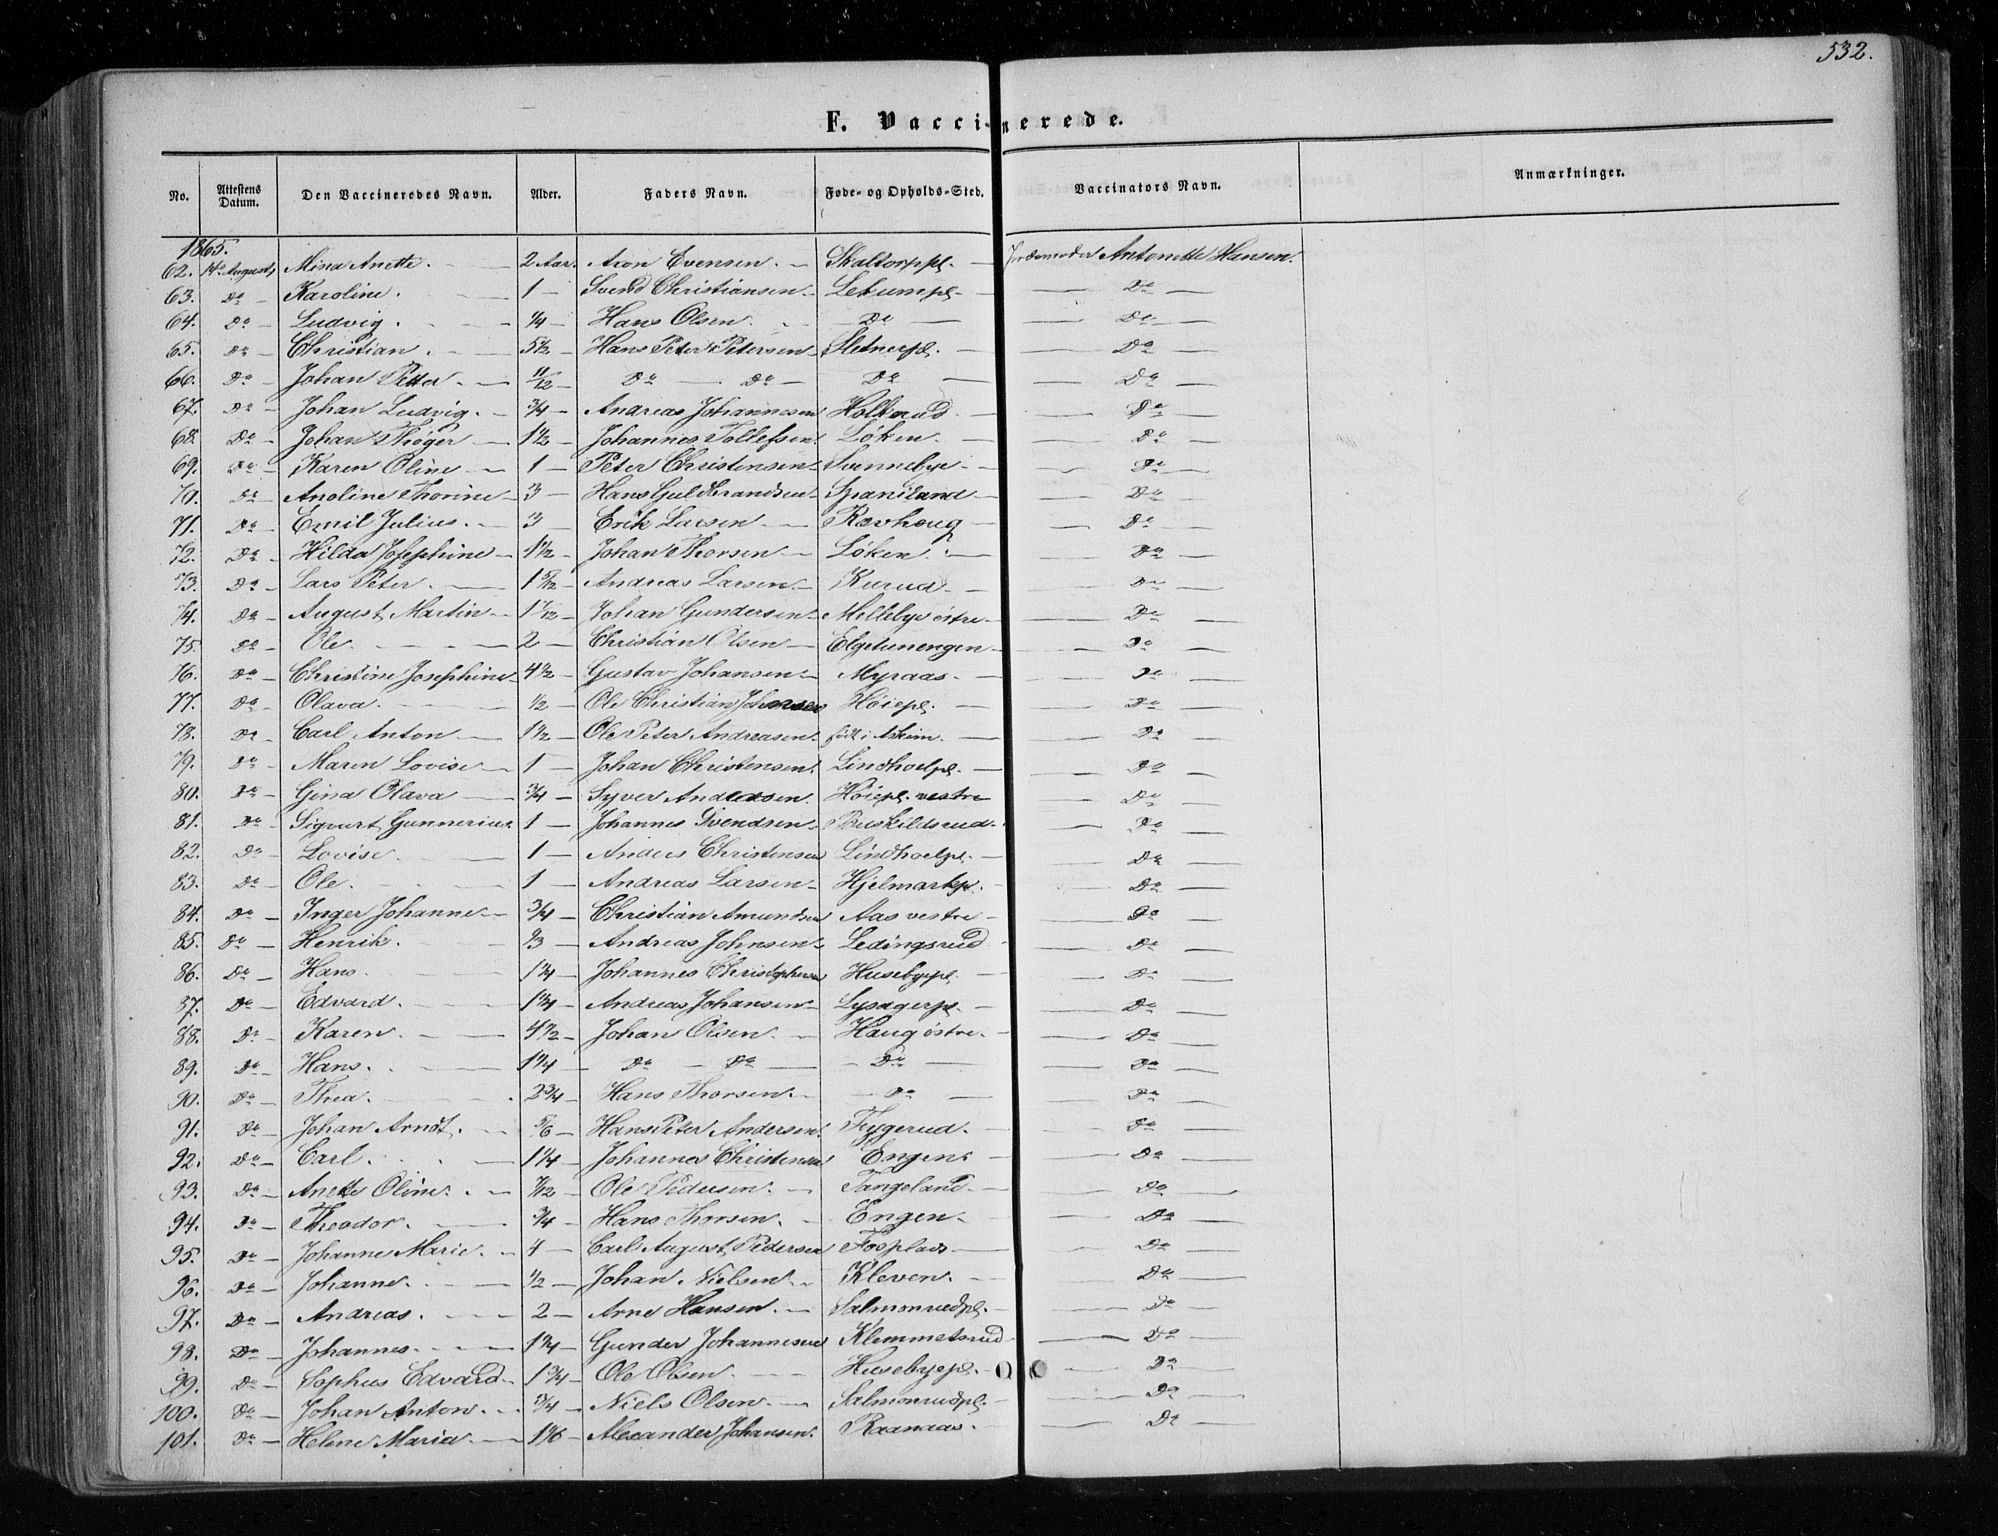 532.
F. Vaccinerede.
No. Attestens Datum. Den Vaccineredes Navn. Alder. Faders Navn. Føde- og Opholds-Sted. Vaccinators Navn. Anmærkninger.
1865.
62. 14de August, Mina Anette. 2 Aar. Aron Evensen. Skaltorppl. Jordemoder Antonette Hansen.
63. Do Karoline. 1 Svend Christiansen Lekumpl. Do
64. Do Ludvig. 1/4 Hans Olsen. Do Do
65. Do Christian. 5 1/2 Hans Peter Petersen Sletnerpl. Do
66. Do Johan Petter. 11/12 Do Do Do Do
67. Do Johan Ludvig. 3/4 Andreas Johannesen Holterud. Do
68. Do Johan Thøger 1 1/2 Johannes Tollefsen. Løken. Do
69. Do Karen Oline 1 Peter Christensen Svennebye Do
70. Do Anoline Thorine 3 Hans Guldbrandsen Spaniland Do
71. Do Emil Julius. 3 Erik Larsen Rævhoug Do
72. Do Hilda Josephine 1 1/2 Johan Thorsen Løken. Do
73. Do Lars Peter. 1 5/12 Andreas Larsen. Kurud Do
74. Do August Martin 1 7/12 Johan Gundersen Mellebye østre Do
75. Do Ole. 2 Christian Olsen Elgetunengen Do
76. Do Christine Josephine 4 1/2 Gustav Johansen Myraas. Do
77. Do Olava. 1/2 Ole Christian Johansen Høiepl. Do
78. Do Carl Anton 1 1/2 Ole Peter Andreasen født i Askim. Do
79. Do Maren Lovise 1 Johan Christensen. Lindhoelpl. Do
80. Do Gina Olava 3/4 Syver Andreasen. Høiepl. vestre Do
81. Do Sigvart Gunnerius. 1 Johannes Svendsen Buskildsrud. Do
82. Do Lovise. 1 Anders Christensen Lindhoelpl. Do
83. Do Ole. 1 Andreas Larsen Hjelmarkpl. Do
84. Do Inger Johanne 3/4 Christian Amundsen Aas vestre Do
85. Do Henrik. 2/3 Andreas Johnsen Ledingsrud Do
86. Do Hans. 1 3/4 Johannes Christophersen Husebyepl. Do
87. Do Edvard. 1 3/4 Andreas Johansen Lysagerpl. Do
88. Do Karen 4 1/2 Johan Olsen Haug østre Do
89. Do Hans. 1 1/4 Do Do Do Do
90. Do Thea. 2 3/4 Hans Thorsen. Do Do
91. Do Johan Arndt. 5/6 Hans Peter Andersen. Tygerud. Do
92. Do Carl. 1 1/4 Johannes Christensen Engen. Do
93. Do Anette Oline. 7/12 Ole Pedersen. Tangeland. Do
94. Do Theodor. 3/4 Hans Thorsen. Engen. Do
95. Do Johanne Marie. 4 Carl August Pedersen Fosplads Do
96. Do Johanne. 1/2 Johan Nielsen. Kleven. Do
97. Do Andreas. 2 Arne Hansen. Salmonrudpl. Do
98. Do Johannes. 1 3/4 Gunder Johannesen Klemmetsrud Do
99. Do Sophus Edvard 1 3/4 Ole Olsen. Husebyepl. Do
100. Do Johan Anton. 3/4 Niels Olsen. Salmonrudpl. Do
101. Do Helene Maria 1 1/6 Alexander Johansen. Raanaas. Do